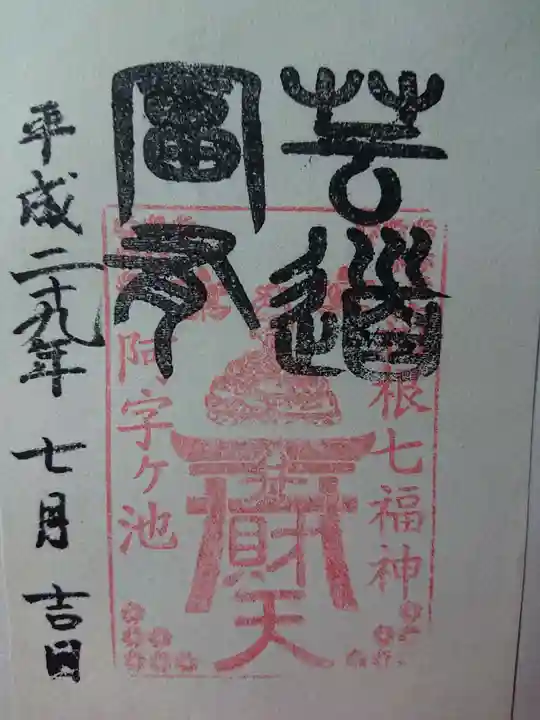 芸道
富
箱根七福神
財天
阿字ヶ池
平成二十九年七月吉日